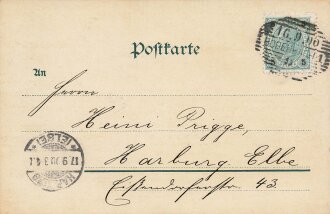 16.9.00
Postkarte
An
Herrn
Heini Prigge,
Harburg Elbe
Eißendorferstr. 43.
(ELBE)
17.9.00